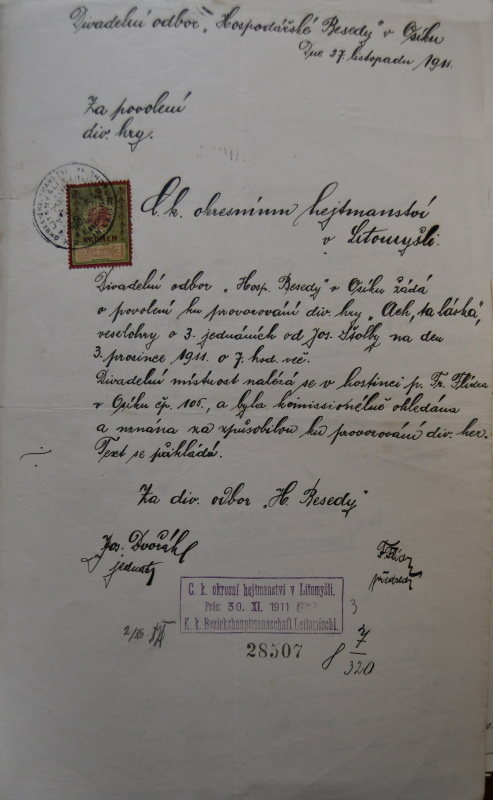 Divadelní odbor „Hospodářské Besedy" v Osíku
Dne 27. listopadu 1911.
Za povolení
div. hry.
C. k. okresnímu hejtmanství
v Litomyšli.
Divadelní odbor „Hosp. Besedy" v Osíku žádá
o povolení ku provozování div. hry „Ach, ta láska",
veselohry o 3. jednáních od Jos. Štolby na den
3. prosince 1911. o 7. hod. več.
Divadelní místnost nalézá se v hostinci p. Fr. Flídra
v Osíku čp. 105., a byla komissionélně ohledána
a uznána za způsobilou ku provozování div. her.
Text se přikládá.
Za div. odbor „H. Besedy"
Jos. Dvořák
jednatel
předseda
C. k. okresní hejtmanství v Litomyšli.
Präs: 30. XI. 1911
K. k. Bezirkshauptmannschaft Leitomischl.
3
28507
8 7/320